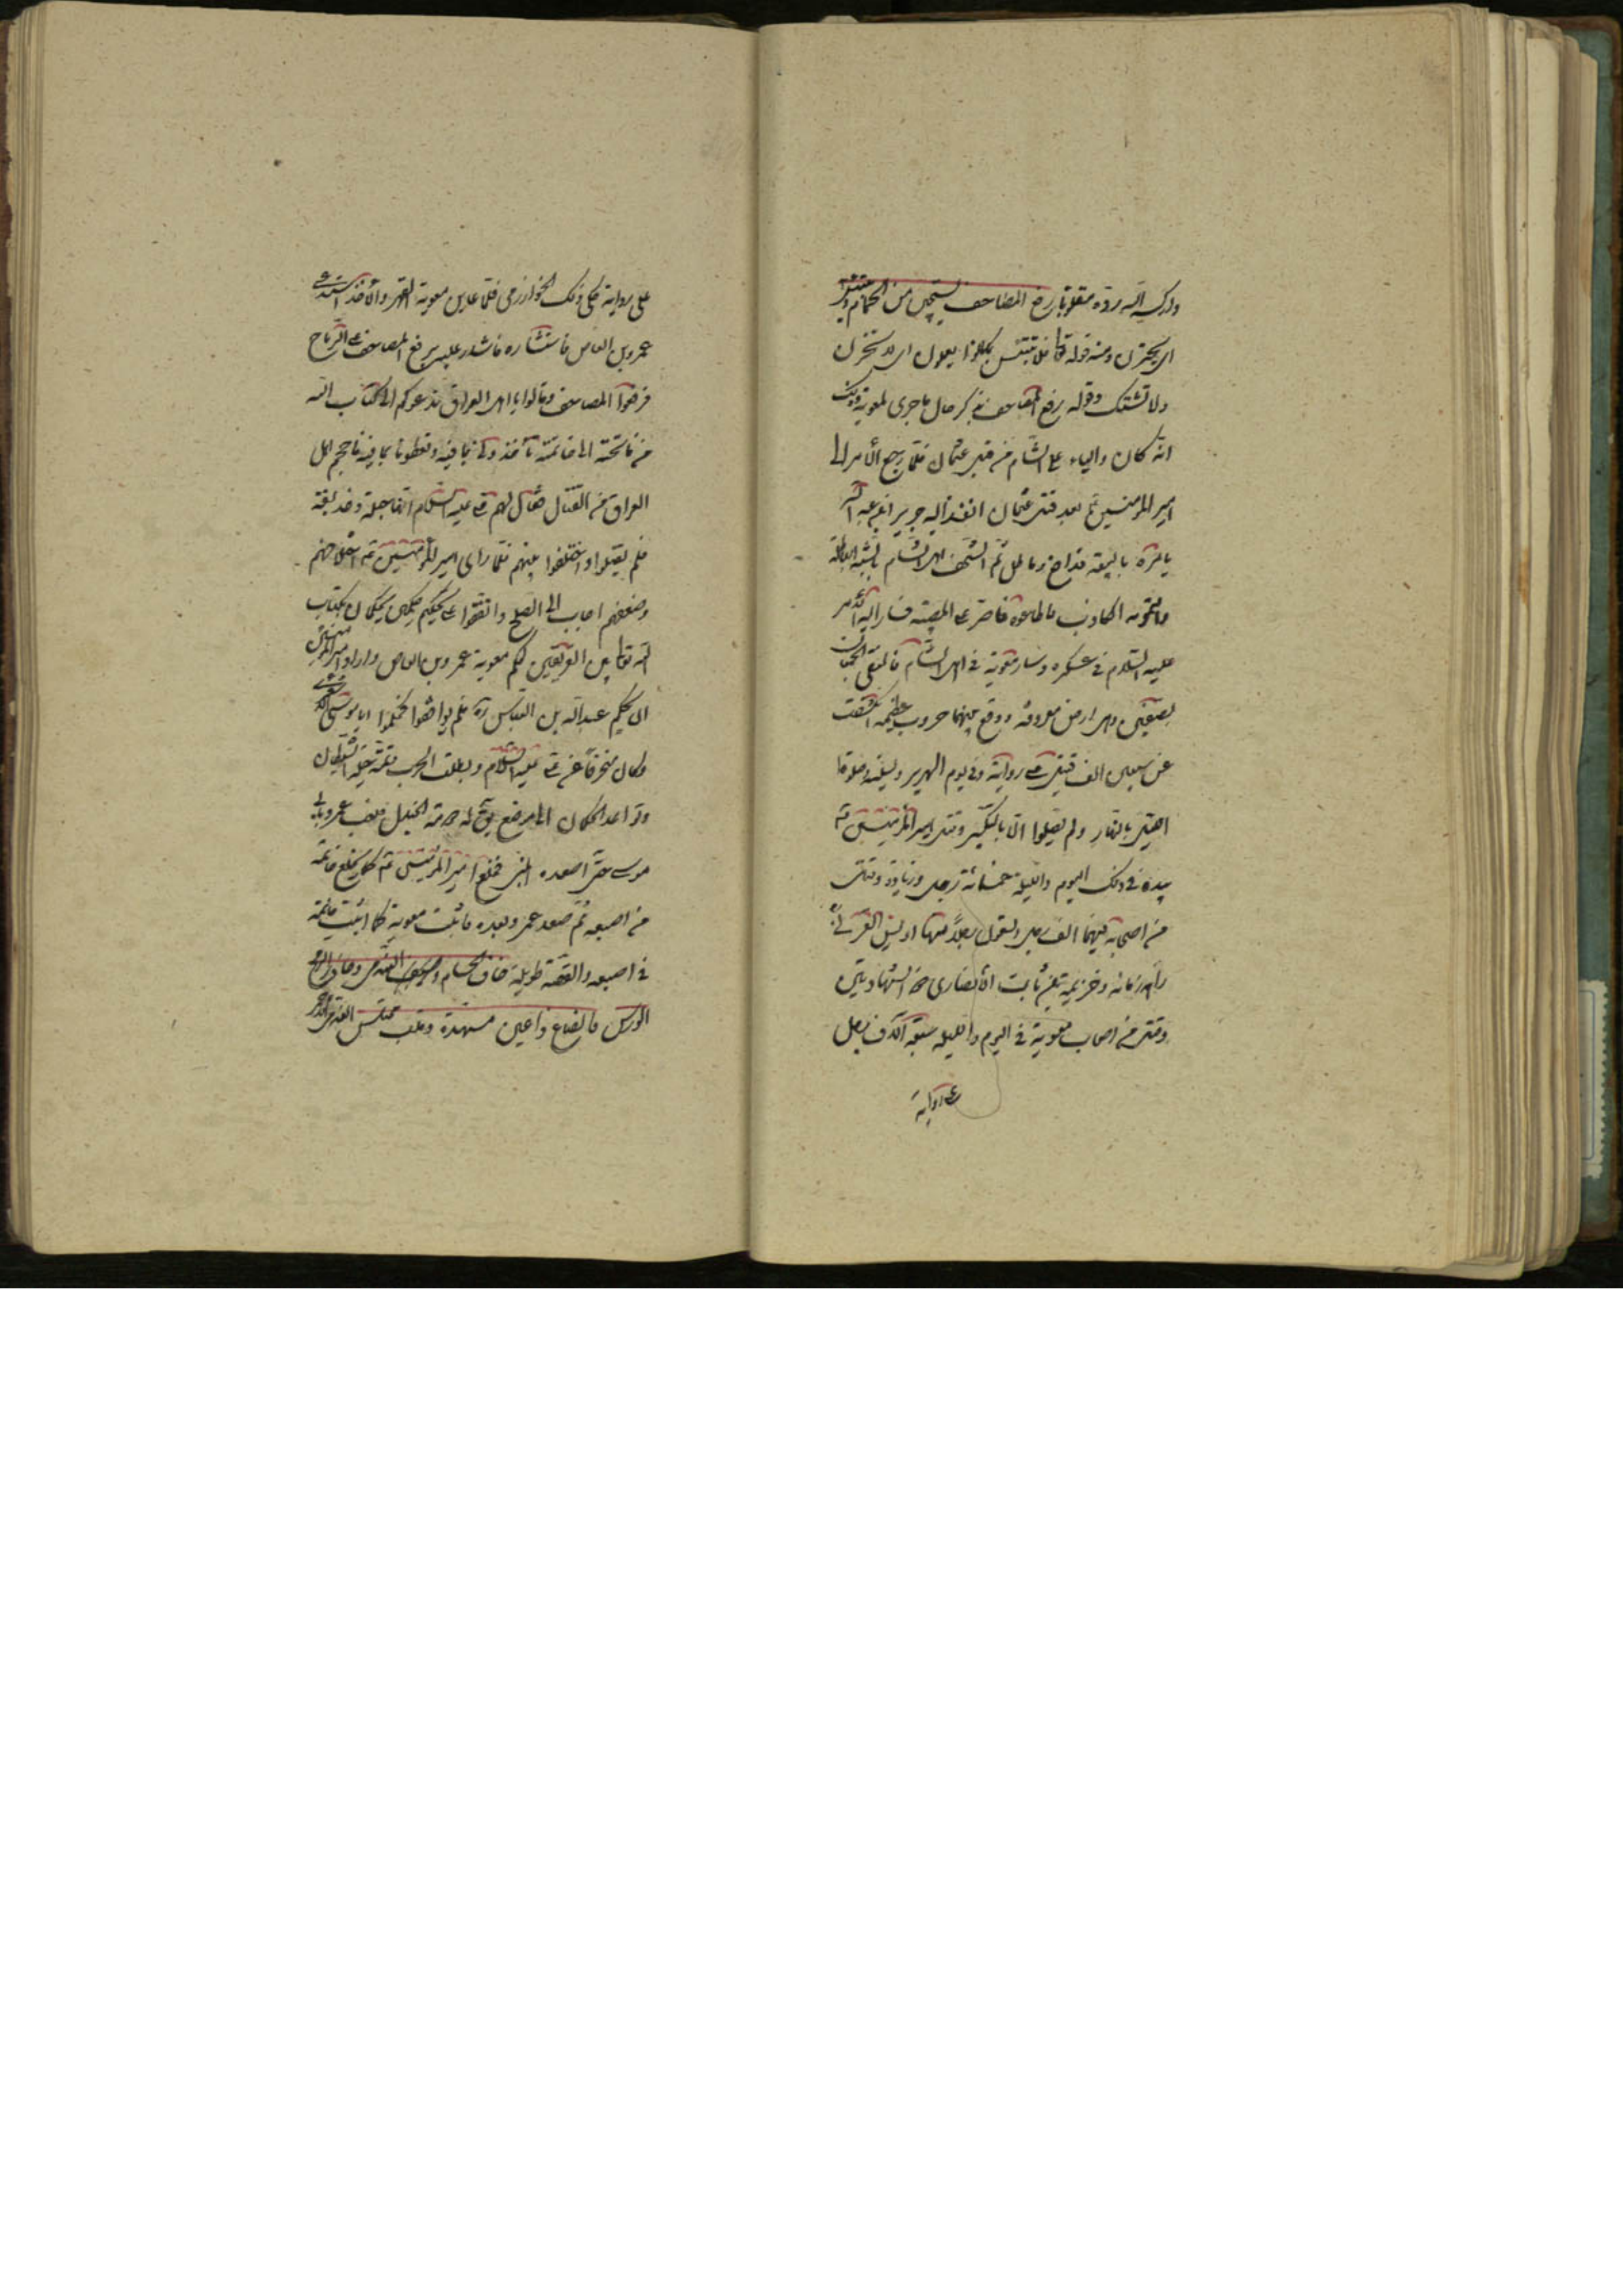 واركسه الله ردّه مقلوبا رفع المصاحف يستجير من الحمام و يبتئس
اى يحزن ومنه قوله تعا فلا تبتئس بما كانوا يفعلون اى لا تحزن
ولا تشتك وقوله رفع المصاحف يذكر حال ما جرى لمعوية وذلك
انه كان واليا على الشام من قبل عثمان فلما رجع الأمر الى
امير المؤمنين ع بعد قتل عثمان انفذ اليه جرير بن عبد الله
يأمره بالبيعة فدافع وماطل ثم استخف اهل الشام بالشبه الباطلة
والتمويه الكاذب فاطاعوه فاصر على المعصية فسار اليه الامير
عليه السلام فى عسكره وسار معوية فى اهل الشام فالتقى الجمعان
بصفين وهى ارض معروفة ووقع بينهما حروب عظيمة انكشفت
عن سبعين الف قتيل على رواية وفى يوم الهرير وليلته
اقتتل بالنهار ولم يصلوا الا بالتكبير وقتل امير المؤمنين ع
بيده فى ذلك اليوم والليلة خمسمائة رجل وزيادة وقتل
من اصحابه فيهما الف رجل منها اويس القرنى
زمانه وخزيمة بن ثابت الأنصارى ذو الشهادتين
وقتل من اصحاب معوية فى اليوم والليلة سبعة آلاف رجل
على رواية
على رواية حكى ذلك الخوارزمى فلما عاين معوية القهر والأخذ استدعى
عمرو بن العاص فاستشاره فاشار عليه برفع المصاحف على الرماح
فرفعوا المصاحف وقالوا يا اهل العراق ندعوكم الى كتاب الله
من فاتحته الى خاتمته تأخذونا بما فيه وتعطونا بما فيه فاحجم اهل
العراق من القتال فقال لهم على عليه السلام انها حيلة وخديعة
فلم يقبلوا واختلفوا بينهم فلما راى امير المؤمنين ع اختلافهم
وضعفهم اجاب الى الصلح واتفقوا على تحكيم حكمين يحكمان بكتاب
الله تعا بين الفريقين فحكم معوية عمرو بن العاص واراد امير المؤمنين
ان يحكم عبد الله بن العباس ره فلم يوافقوا فحكموا ابا موسى الاشعرى
وكان منحرفا عن على عليه السلام وبطلت الحرب حيلة الشيطان
وتواعد الحكمان الى موضع يق له دومة الجندل فلعب عمرو بابى
موسى حتى اصعده المنبر فخلع امير المؤمنين ع كما يخلع خاتمه
من اصبعه ثم صعد عمرو بعده فاثبت معوية كما اثبت خاتمه
فى اصبعه والقصة طويلة خاف الحسام
الورس فانصاع ذا عين مسهدة وقلب